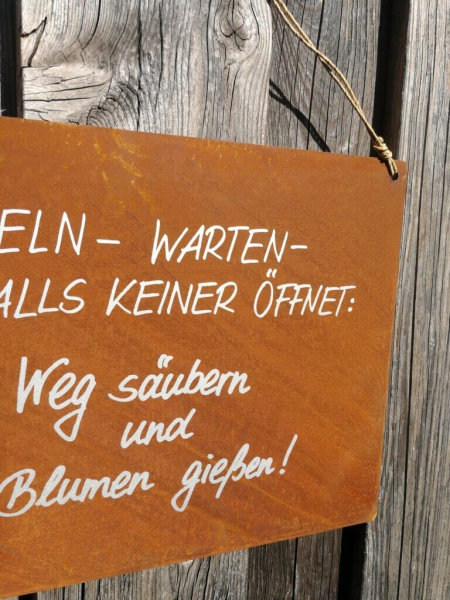 ELN - WARTEN -
ALLS KEINER ÖFFNET:
Weg säubern
und
Blumen gießen!